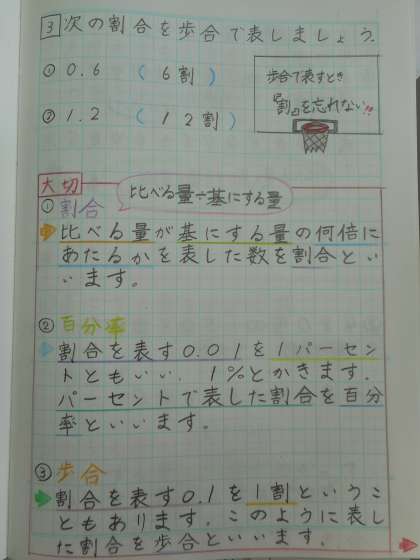 3 次の割合を歩合で表しましょう.
① 0.6 (6割)
② 1.2 (12割)
歩合で表すとき
『割』を忘れない!!
大切
比べる量÷基にする量
① 割合
比べる量が基にする量の何倍に
あたるかを表した数を割合とい
います。
② 百分率
割合を表す0.01を1パーセン
トともいい. 1%とかきます.
パーセントで表した割合を百分
率といいます。
③ 歩合
割合を表す0.1を1割というこ
ともあります. このように表し
た割合を歩合といいます.